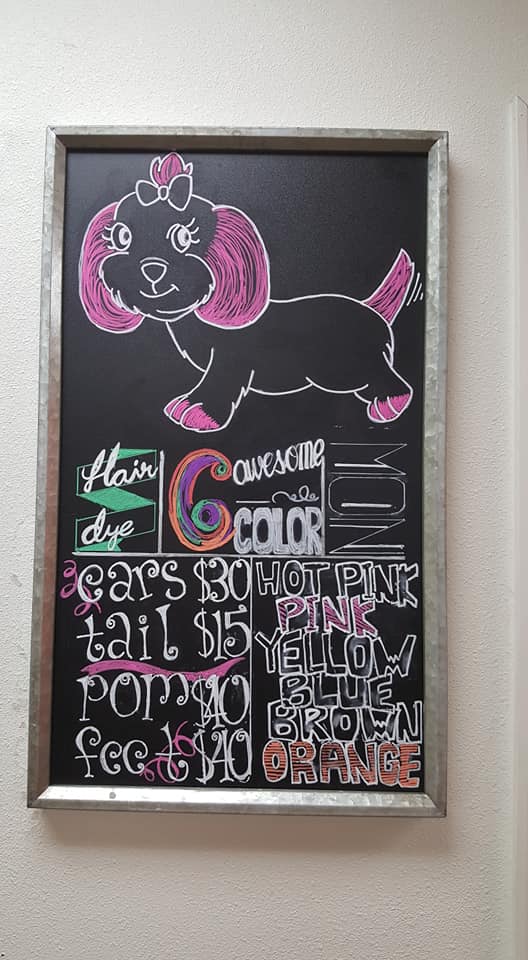 Hair dye
6 awesome COLOR
MON
ears $30
tail $15
pom $10
feet $40
HOT PINK
PINK
YELLOW
BLUE
BROWN
ORANGE